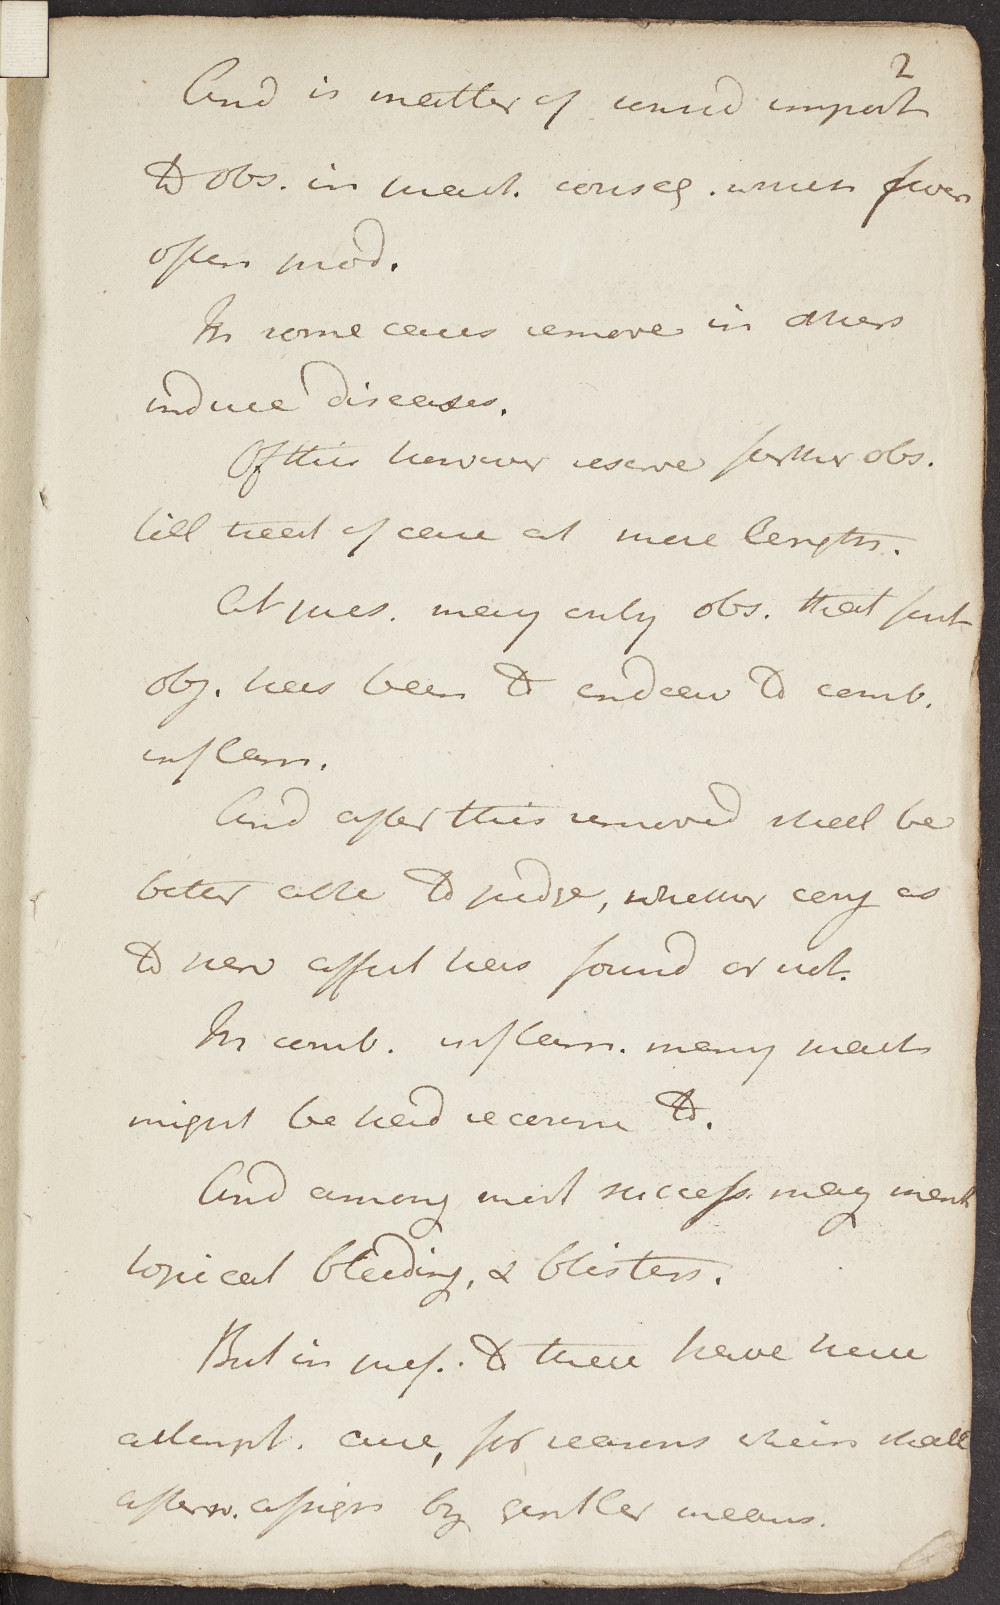 2
And is matter of consid import
to obs. in treat. conseq. which fever
often prod.
In some cases remove in others
induce diseases.
Of this however reserve further obs.
till treat of cure at more length.
At pres. may only obs. that first
obj. has been to endeav to comb.
inflam.
And after this removed shall be
better able to judge, whether any as
to nerv affect has found or not.
In comb. inflam. many meas
might be had recourse to.
And among most success. may ment
topical bleeding, & blisters.
But in pref. to these have here
attempt. cure, for reasons which shall
afterw. assign by gentler means.